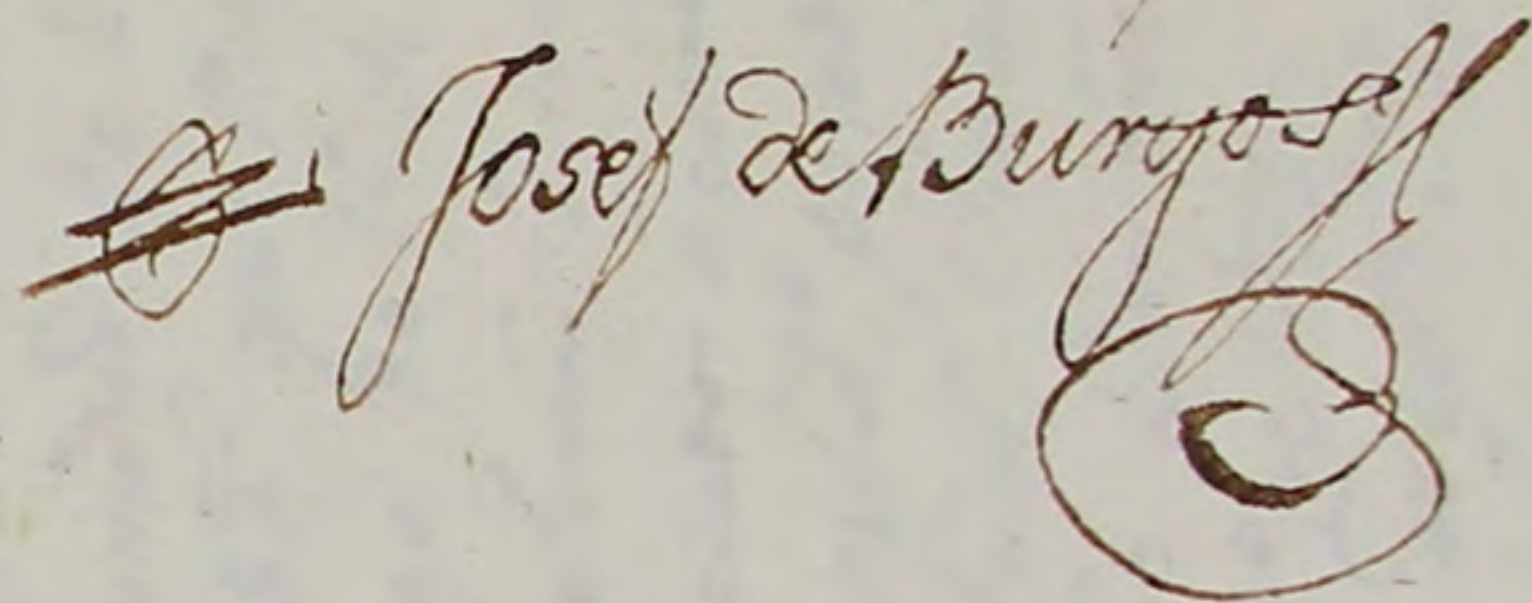 Josef de Burgos